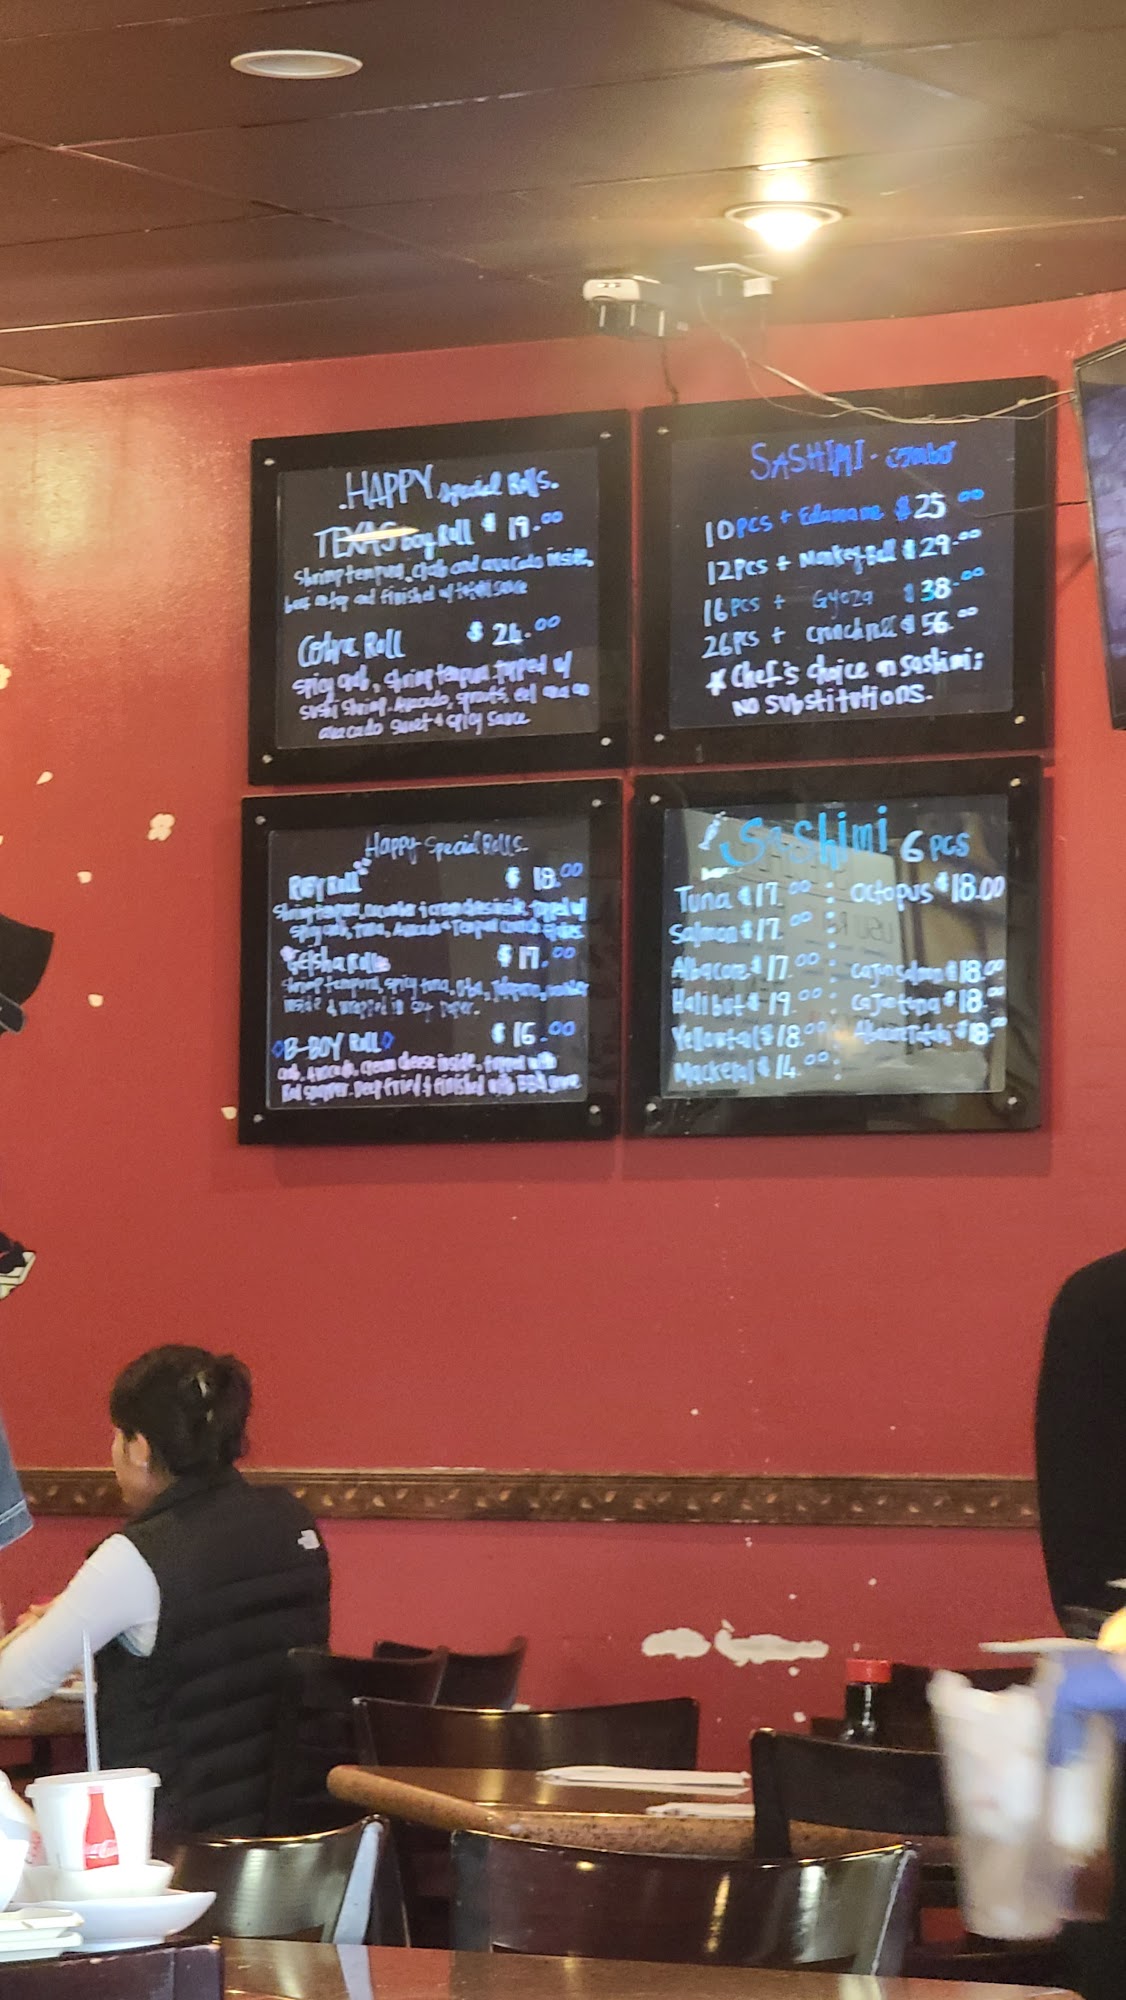 HAPPY Special Rolls.
TEXAS Boy Roll $ 19.00
shrimp tempura, crab and avocado inside,
beef on top and finished w/ sauce
Cobra Roll $ 24.00
spicy crab, shrimp tempura topped w/
sushi shrimp, Avocado, sprouts, eel and an
avocado sweet & spicy sauce
SASHIMI - combo
10pcs + Edamame $25.00
12pcs + Monkey-Ball $29.00
16pcs + Gyoza $38.00
26pcs + crunch roll $56.00
* Chef's choice on sashimi;
NO substitutions.
Happy Special Rolls.
Roll $ 18.00
shrimp tempura, cucumber & cream cheese inside, topped w/
spicy crab, tuna, Avocado & Tempura crunch
Geisha Roll $ 17.00
shrimp tempura, spicy tuna, Jalapeno,
inside & wrapped in soy paper.
B-BOY Roll $ 16.00
crab, avocado, cream cheese inside, topped with
Red snapper. Deep fried & finished with BBQ sauce
Sashimi 6 pcs
Tuna $17.00 : Octopus $18.00
Salmon $17.00 :
Albacore $17.00 : cajun salmon $18.00
Halibut $19.00 : cajun tuna $18.00
Yellowtail $18.00 : Albacore Tataki $18.00
Mackeral $14.00 :